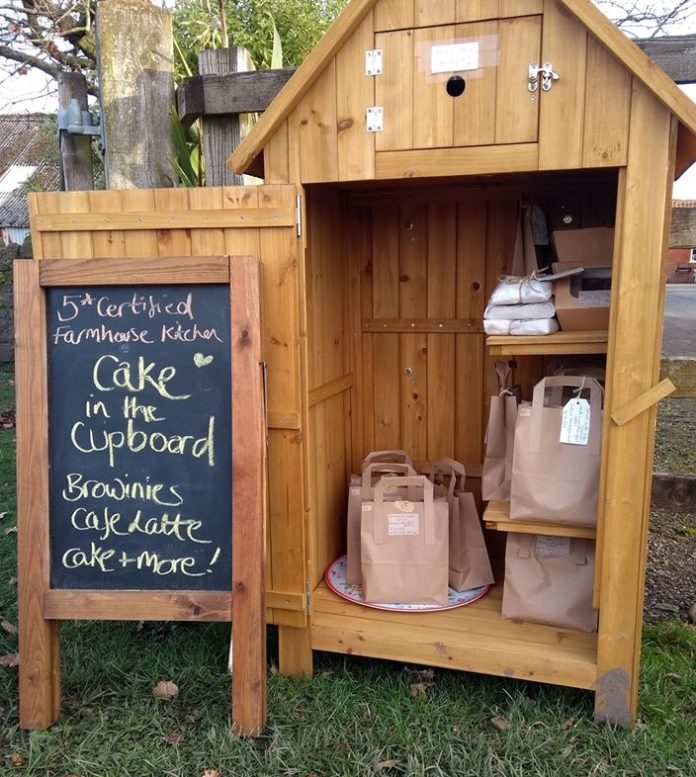 5* Certified
Farmhouse Kitchen
Cake
in the
Cupboard
Browinies
Cafe Latte
cake + more!